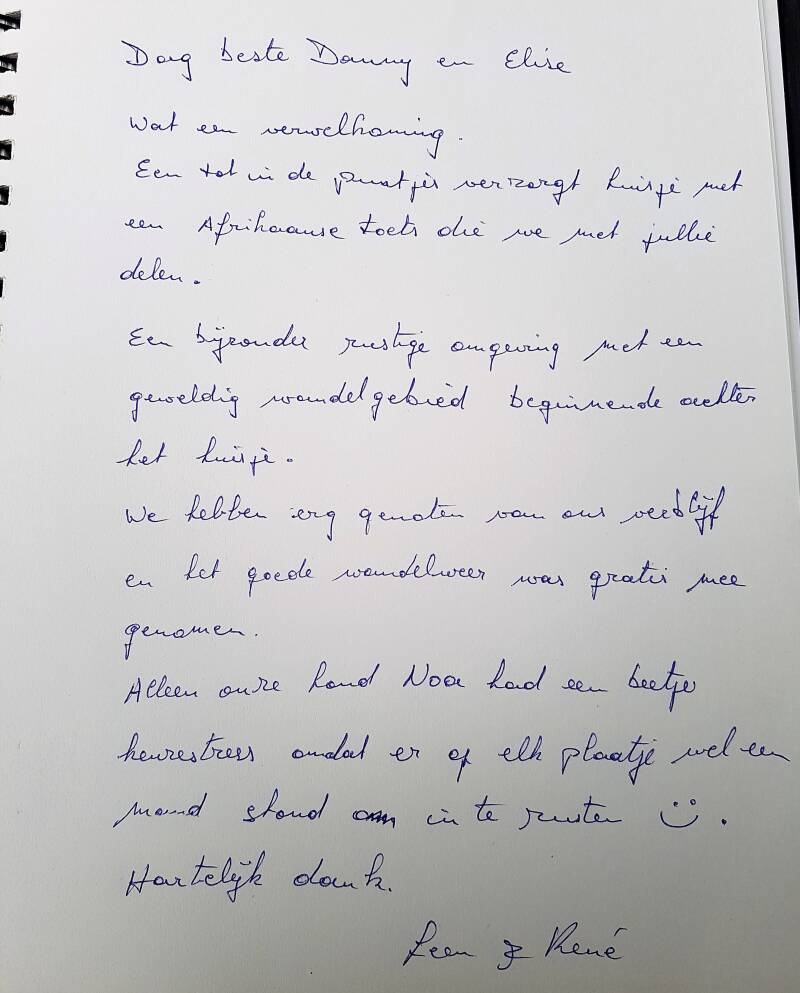 Dag beste Danny en Elise
Wat een verwelkoming.
Een tot in de puntjes verzorgt huisje met
een Afrikaanse toets die we met jullie
delen.
Een bijzonder rustige omgeving met een
geweldig wandelgebied beginnende achter
het huisje.
We hebben erg genoten van ons verblijf
en het goede wandelweer was gratis mee
genomen.
Alleen onze hond Noa had een beetje
keuzestress omdat er op elk plaatje wel een
mand stond om in te rusten :).
Hartelijk dank.
Leen & René